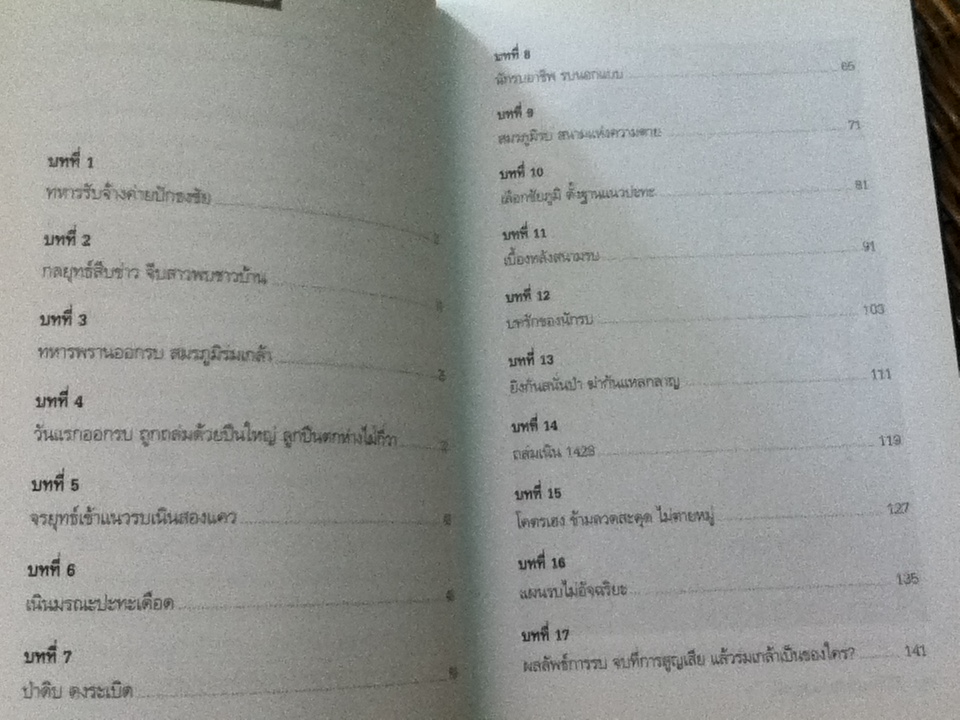 บทที่ 1
ทหารรับจ้างค่ายปักธงชัย
บทที่ 2
กลยุทธ์สืบข่าว จีบสาวพบชาวบ้าน
บทที่ 3
ทหารพรานออกรบ สมรภูมิร่มเกล้า
บทที่ 4
วันแรกออกรบ ถูกถล่มด้วยปืนใหญ่ ลูกปืนตกห่างไม่กี่วา
บทที่ 5
จรยุทธ์เข้าแนวรบเนินสองแคว
บทที่ 6
เนินมรณะปะทะเดือด
บทที่ 7
ป่าดิบ ดงระเบิด
บทที่ 8
นักรบอาชีพ รบนอกแบบ 65
บทที่ 9
สมรภูมิรบ สนามแห่งความตาย 71
บทที่ 10
เลือกชัยภูมิ ตั้งฐานแนวปะทะ 81
บทที่ 11
เบื้องหลังสนามรบ 91
บทที่ 12
บทรักของนักรบ 103
บทที่ 13
ยิงกันสนั่นป่า ฆ่ากันแหลกลาญ 111
บทที่ 14
ถล่มเนิน 1428 119
บทที่ 15
โคตรเฮง ข้ามลวดสะดุด ไม่ตายหมู่ 127
บทที่ 16
แผนรบไม่อัจฉริยะ 135
บทที่ 17
ผลลัพธ์การรบ จบที่การสูญเสีย แล้วรมเกล้าเป็นของใคร? 141